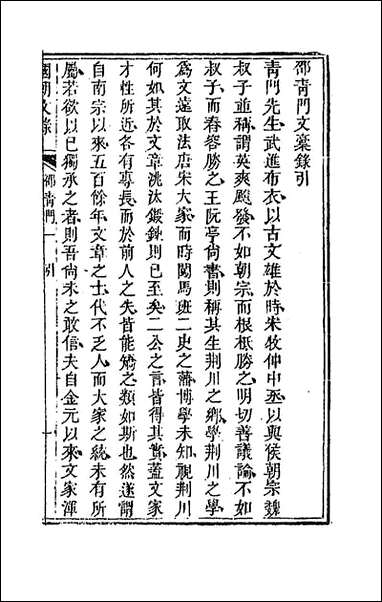 邵青門文稾錄引
青門先生武進布衣以古文雄於時宋牧仲中丞以與侯朝宗魏
叔子並稱謂英爽飈發不如朝宗而根柢勝之明切善議論不如
叔子而舂容勝之王阮亭尙書則稱其生荆川之鄕學荆川之學
爲文遠取法唐宋大家而時闖馬班二史之藩博學未知視荆川
何如其於文章洮汰鍛鍊則已至矣二公之言皆得其實蓋文家
才性所近各有專長而於前人之失皆能矯之類如斯也然遂謂
自南宗以來五百餘年文章之士代不乏人而大家之統未有所
屬若欲以已獨承之者則吾尙未之敢信夫自金元以來文家渾
國朝文錄
邵青門
引
一